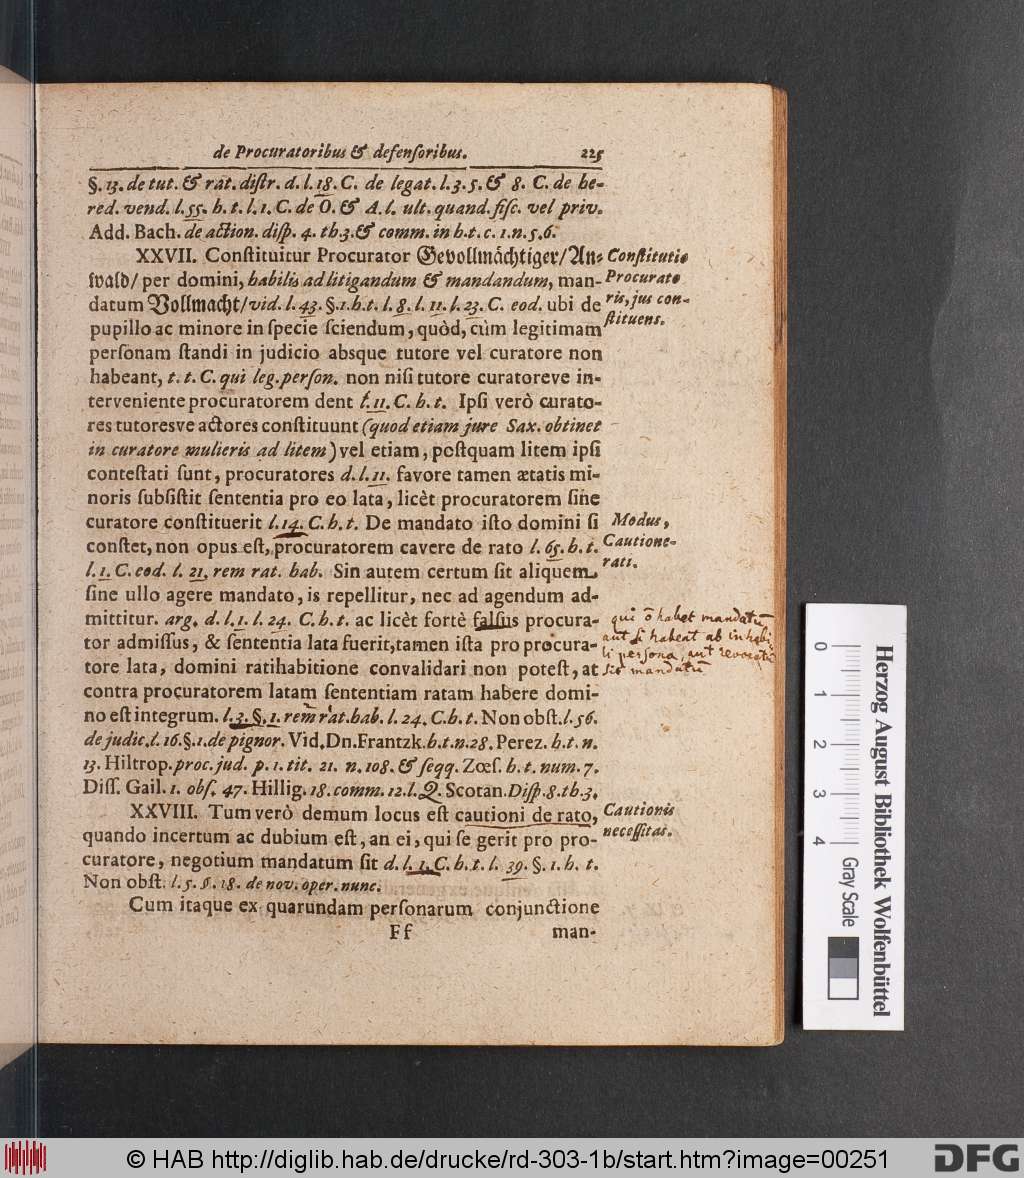 de Procuratoribus & defenſoribus. 225
§. 13. de tut. & rat. diſtr. d. l. 18. C. de legat. l. 3. 5. & 8. C. de he-
red. vend. l. 55. h. t. l. 1. C. de O. & A. l. ult. quand. fiſc. vel priv.
Add. Bach. de action. diſp. 4. th. 3. & comm. in h. t. c. 1. n. 5. 6.
XXVII. Conſtituitur Procurator Gevollmächtiger/ An-
wald/ per domini, habilis ad litigandum & mandandum, man-
datum Vollmacht/ vid. l. 43. §. 1. h. t. l. 8. l. 11. l. 23. C. eod. ubi de
pupillo ac minore in ſpecie ſciendum, quòd, cùm legitimam
perſonam ſtandi in judicio absque tutore vel curatore non
habeant, t. t. C. qui leg. perſon. non niſi tutore curatoreve in-
terveniente procuratorem dent l. 11. C. h. t. Ipſi verò curato-
res tutoresve actores conſtituunt (quod etiam jure Sax. obtinet
in curatore mulieris ad litem) vel etiam, poſtquam litem ipſi
conteſtati ſunt, procuratores d. l. 11. favore tamen ætatis mi-
noris ſubſiſtit ſententia pro eo lata, licèt procuratorem ſine
curatore conſtituerit l. 14. C. h. t. De mandato iſto domini ſi
conſtet, non opus eſt, procuratorem cavere de rato l. 65. h. t.
l. 1. C. eod. l. 21. rem rat. hab. Sin autem certum ſit aliquem
ſine ullo agere mandato, is repellitur, nec ad agendum ad-
mittitur. arg. d. l. 1. l. 24. C. h. t. ac licèt fortè falſus procura-
tor admiſſus, & ſententia lata fuerit, tamen iſta pro procura-
tore lata, domini ratihabitione convalidari non poteſt, at
contra procuratorem latam ſententiam ratam habere domi-
no eſt integrum. l. 3. §. 1. rem rat. hab. l. 24. C. h. t. Non obſt. l. 56.
de judic. l. 16. §. 1. de pignor. Vid. Dn. Frantzk. h. t. n. 28. Perez. h. t. n.
13. Hiltrop. proc. jud. p. 1. tit. 21. n. 108. & ſeqq. Zœſ. h. t. num. 7.
Diſſ. Gail. 1. obſ. 47. Hillig. 18. comm. 12. l. Q. Scotan. Diſp. 8. th. 3.
XXVIII. Tum verò demum locus eſt cautioni de rato,
quando incertum ac dubium eſt, an ei, qui ſe gerit pro pro-
curatore, negotium mandatum ſit d. l. 1. C. h. t. l. 39. §. 1. h. t.
Non obſt. l. 5. §. 18. de nov. oper. nunc.
Cum itaque ex quarundam perſonarum conjunctione
Ff man-
Conſtitutio
Procurato
ris, jus con-
ſtituens.
Modus,
Cautione-
rati.
qui õ habet mandatū
aut ſi habeat ab inhabi
li persona, aut revocatū
sit mandatū
Cautionis
neceſſitas.
0 1 2 3 4
Gray Scale
Herzog August Bibliothek Wolfenbüttel
© HAB http://diglib.hab.de/drucke/rd-303-1b/start.htm?image=00251
DFG